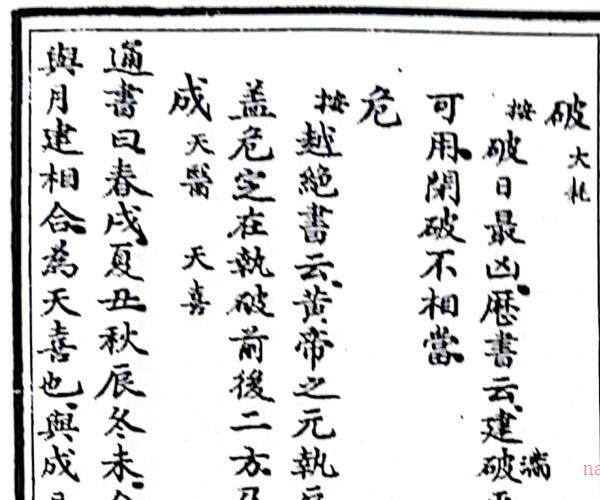 破 大耗
按破日最凶歷書云建破
滿
可用閉破不相當
危
按越絕書云黃帝之元執辰
蓋危定在執破前後二方
成 天醫 天喜
通書曰春戌夏丑秋辰冬未
與月建相合為天喜也與成
na